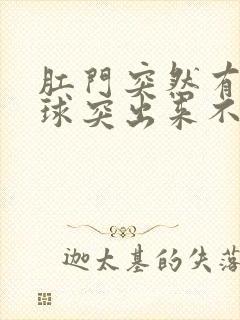 肛門突然有
球突出来不
迦太基的失落